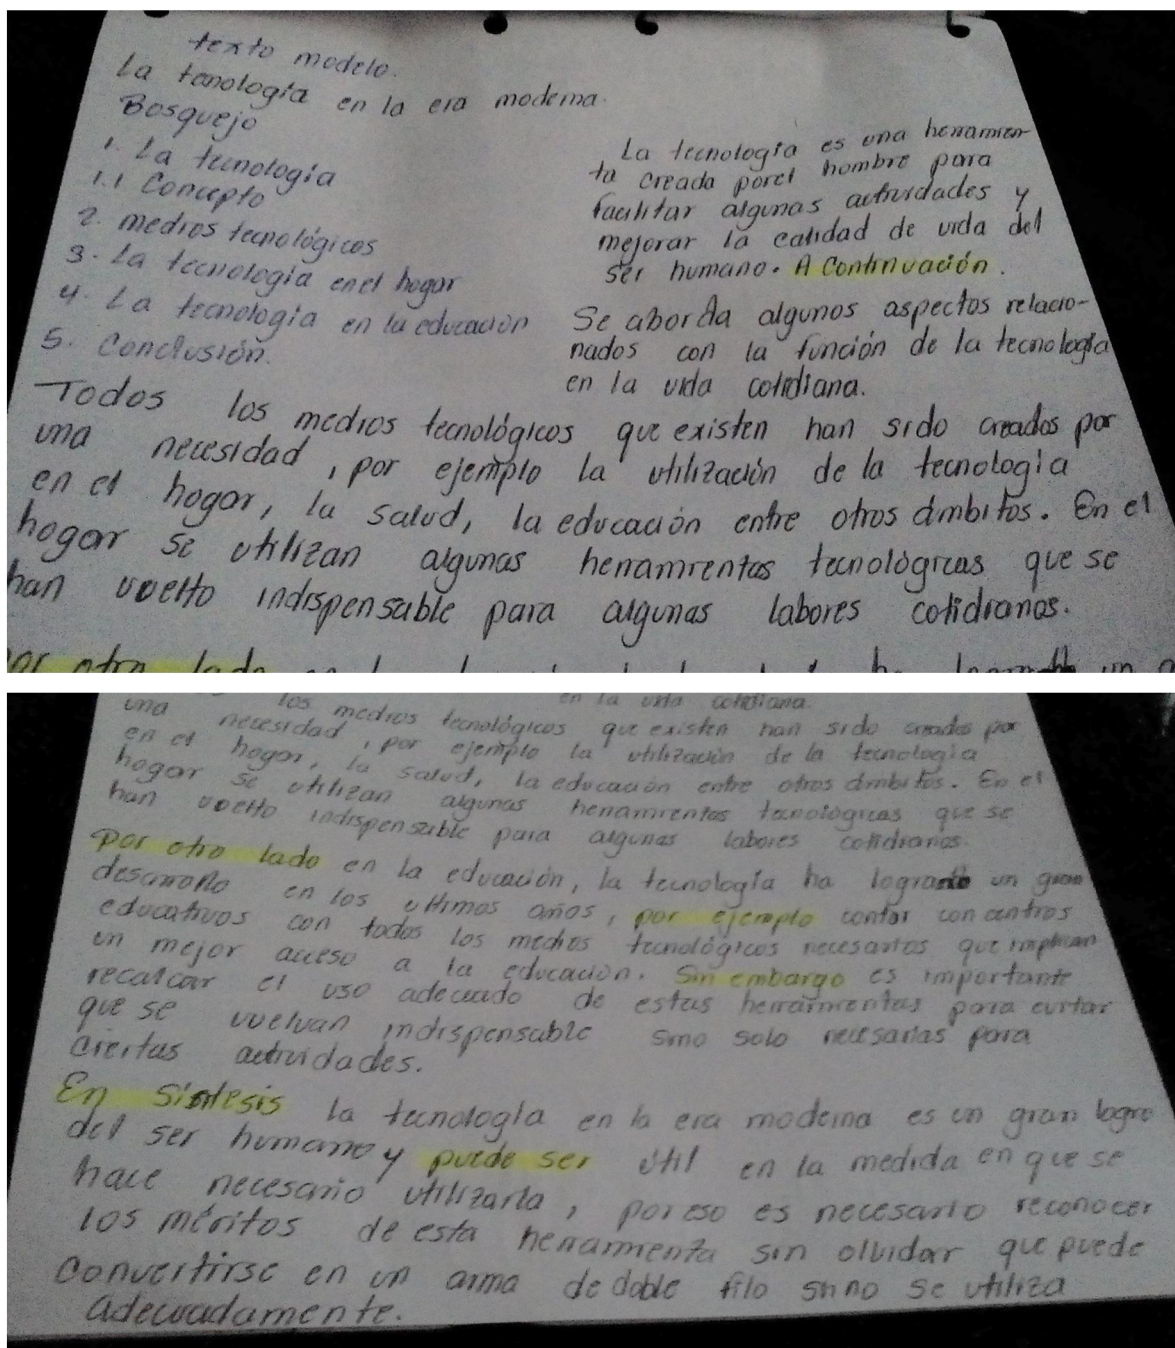 texto modelo.
La tecnología en la era moderna.
Bosquejo
1. La tecnología
1.1 Concepto
2. medios tecnológicos
3. La tecnología en el hogar
4. La tecnología en la educación
5. Conclusión.
La tecnología es una herramien-
ta creada por el hombre para
facilitar algunas actividades y
mejorar la calidad de vida del
ser humano. A continuación.
Se aborda algunos aspectos relacio-
nados con la función de la tecnología
en la vida cotidiana.
Todos los medios tecnológicos que existen han sido creados por
una necesidad, por ejemplo la utilización de la tecnología
en el hogar, la salud, la educación entre otros ámbitos. En el
hogar se utilizan algunas herramientas tecnológicas que se
han vuelto indispensable para algunas labores cotidianas.
Por otro lado
los medios tecnológicos que existen han sido creados por
en la vida cotidiana.
una necesidad, por ejemplo la utilización de la tecnología
en el hogar, la salud, la educación entre otros ámbitos. En el
hogar se utilizan algunas herramientas tecnológicas que se
han vuelto indispensable para algunas labores cotidianas.
Por otro lado en la educación, la tecnología ha logrado un gran
desarrollo en los ultimos años, por ejemplo contar con centros
educativos con todos los medios tecnológicos necesarios que implican
un mejor acceso a la educación. Sin embargo es importante
recalcar el uso adecuado de estas herramientas para evitar
que se vuelvan indispensable sino solo necesarias para
ciertas actividades.
En Síntesis la tecnología en la era moderna es un gran logro
del ser humano y puede ser útil en la medida en que se
hace necesario utilizarla, por eso es necesario reconocer
los méritos de esta herramienta sin olvidar que puede
convertirse en un arma de doble filo si no se utiliza
adecuadamente.